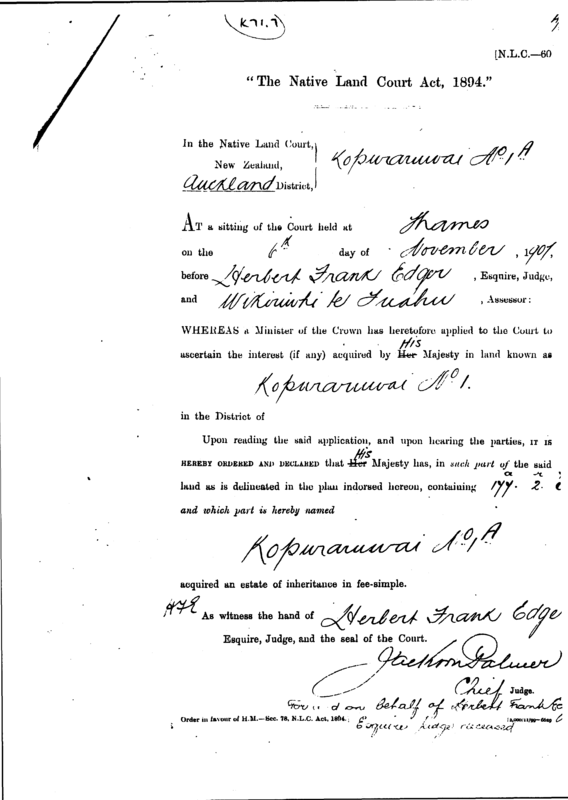 K71.7
[N.L.C.—60
"The Native Land Court Act, 1894."
In the Native Land Court,
New Zealand,
Auckland District,
Kopuraruwai No 1A
AT a sitting of the Court held at Thames
on the 6th day of November, 1907,
before Herbert Frank Edger, Esquire, Judge,
and , Assessor:
WHEREAS a Minister of the Crown has heretofore applied to the Court to
His
ascertain the interest (if any) acquired by Her Majesty in land known as
Kopuraruwai No 1.
in the District of
Upon reading the said application, and upon hearing the parties, IT IS
His
HEREBY ORDERED AND DECLARED that Her Majesty has, in such part of the said
a r
land as is delineated in the plan indorsed hereon, containing 177. 2.
and which part is hereby named
Kopuraruwai No 1A
acquired an estate of inheritance in fee-simple.
HFE As witness the hand of Herbert Frank Edge
Esquire, Judge, and the seal of the Court.
Jackson Palmer
Chief Judge.
For and on behalf of Herbert Frank Ed
Order in favour of H.M.—Sec. 78, N.L.C. Act, 1894.
Esquire Judge deceased